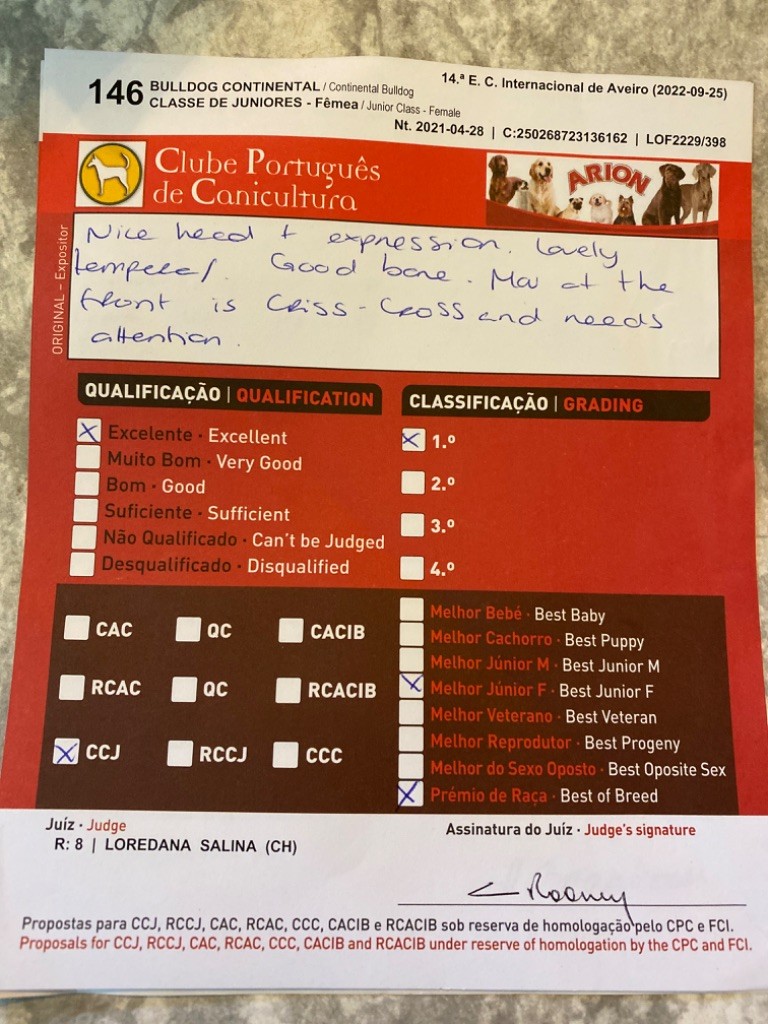 146 BULLDOG CONTINENTAL / Continental Bulldog
14.ª E. C. Internacional de Aveiro (2022-09-25)
CLASSE DE JUNIORES - Fêmea / Junior Class - Female
Nt. 2021-04-28 | C:250268723136162 | LOF2229/398
Clube Português
de Canicultura
ARION
ORIGINAL – Expositor
Nice head + expression. Lovely
Good bone. at the
front is criss-cross and needs
attention.
QUALIFICAÇÃO | QUALIFICATION
Excelente · Excellent
Muito Bom · Very Good
Bom · Good
Suficiente · Sufficient
Não Qualificado · Can't be Judged
Desqualificado · Disqualified
CLASSIFICAÇÃO | GRADING
1.º
2.º
3.º
4.º
CAC QC CACIB
RCAC QC RCACIB
CCJ RCCJ CCC
Melhor Bebé · Best Baby
Melhor Cachorro · Best Puppy
Melhor Júnior M · Best Junior M
Melhor Júnior F · Best Junior F
Melhor Veterano · Best Veteran
Melhor Reprodutor · Best Progeny
Melhor do Sexo Oposto · Best Oposite Sex
Prémio de Raça · Best of Breed
Juíz · Judge
R: 8 | LOREDANA SALINA (CH)
Assinatura do Juíz · Judge's signature
Rooney
Propostas para CCJ, RCCJ, CAC, RCAC, CCC, CACIB e RCACIB sob reserva de homologação pelo CPC e FCI.
Proposals for CCJ, RCCJ, CAC, RCAC, CCC, CACIB and RCACIB under reserve of homologation by the CPC and FCI.